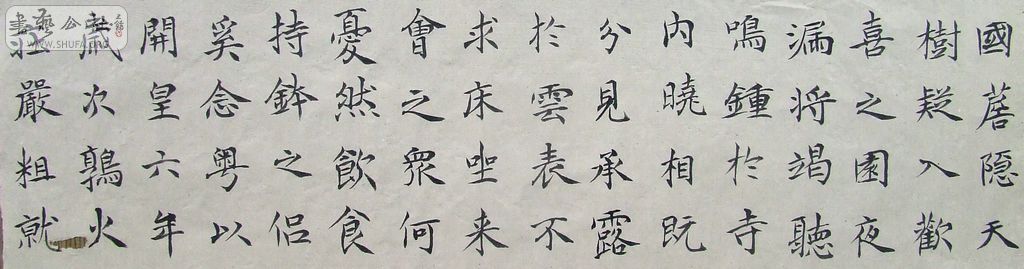 國隱天
樹疑入歡
喜之園夜
漏將竭聽
鳴鍾於寺
內曉相既
分見承露
於雲表不
求床坐来
會之眾何
憂然飲食
持鉢之侶
奚念粵以
開皇六年
歲次鶉火
莊嚴粗就
書藝公社
WWW.SHUFA.ORG